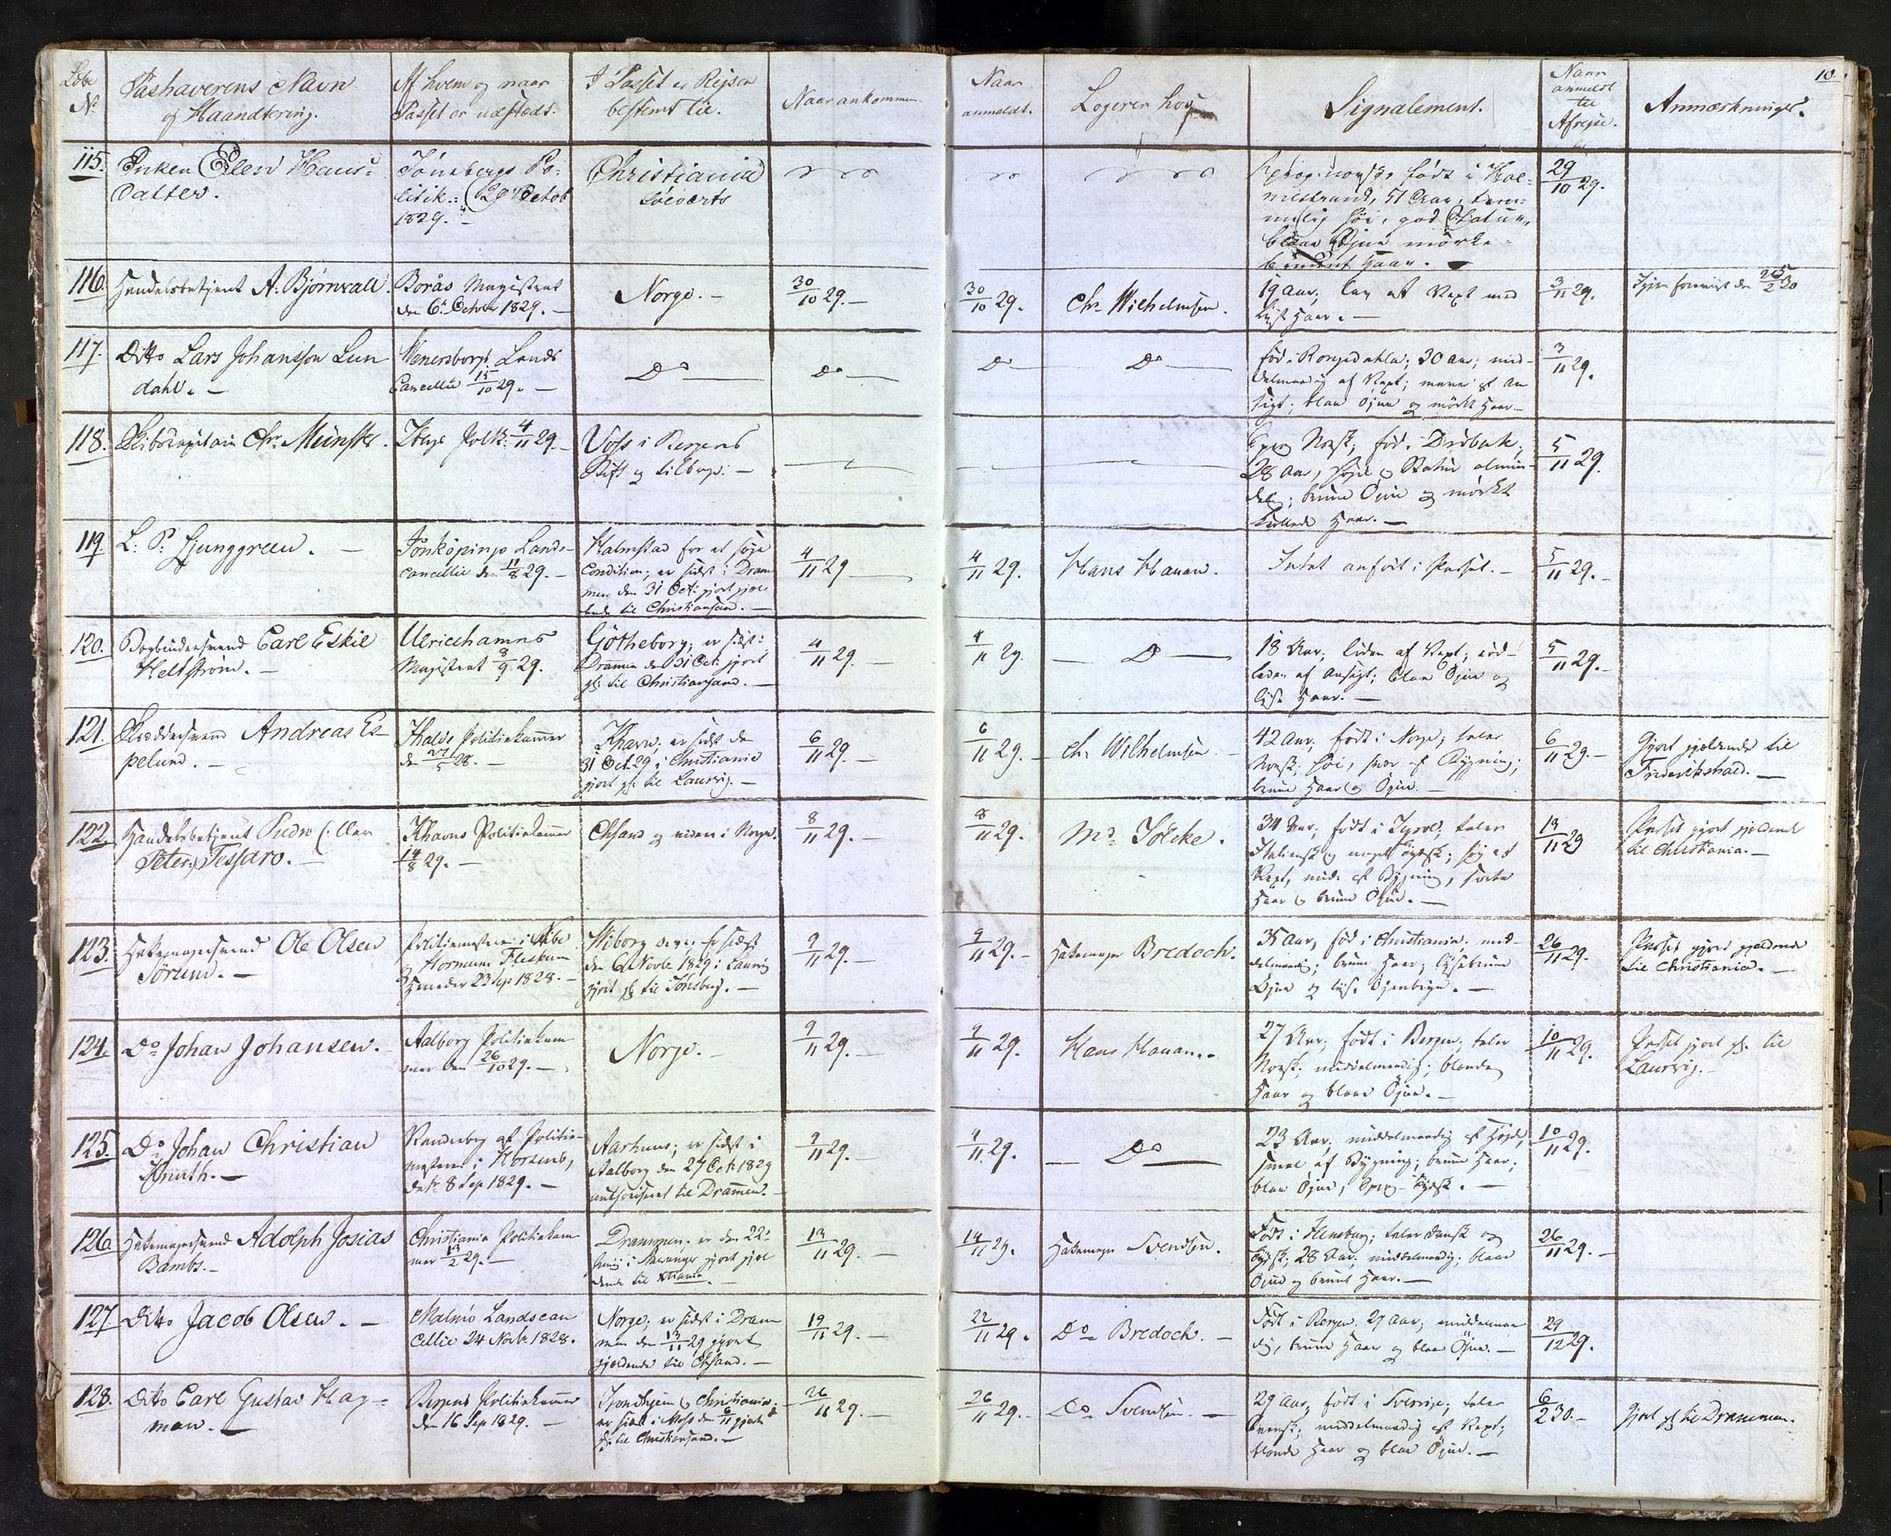 Løbe
No
Pashaverens Navn
og Haandtering.
Af hvem og naar
Passet er udstædt.
I Passet er Rejsen
bestemt til.
Naar ankommen.
Naar
anmeldt.
Logerer hos
Signalement.
Naar
anmeldt
til
Afrejse.
Anmærkninger.
10
115. Enken Elen Hans-
datter.
Tønsbergs Po-
litik.: 29 Octob
1829.
Christiania
Søeværts
født i Hol-
mestrand, 51 Aar, tem-
melig høi, god Statur,
blaae Øjne mørke-
bruunt Haar. -
29/10 29.
116. Handelsbetjent A. Bjørnvall.
Borås Magistrat
den 6. October 1829. -
Norge. -
30/10 29. -
30/10 29.
Chr. Wilhelmsen.
19 Aar; lang af Vext med
lyst Haar. -
3/11 29.
117. Ditto Lars Johansson Lun
dahl. -
Wenersborgs Lands
Cancellie 15/10 29. -
Do
Do
Do
Do
30 Aar; mid-
delmaadig af Vext; mager af An
sigt; blaae Øjne og mørkt Haar -
3/11 29.
118. Skibscapitain Chr. Münster.
4/11 29. -
Voss i Bergens
Stift og tilbage. -
Norsk, fød i Drøbak,
28 Aar, høj, Statur almin-
del; brune Øjne og mørkt
Haar. -
5/11 29.
119. L. P. Ljunggreen. -
Jönköpings Lands-
cancellie den 11/8 29. -
Halmstad for at søge
Condition; er sidst i Dram
men den 31 Oct. gjort gjæl
dende til Christiansand. -
4/11 29 -
4/11 29.
Hans Hauan.
Intet anført i Passet. -
5/11 29. -
120. Bogbindersvend Carl Eskil
Hellstrøm. -
Ulricehamns
Magistrat 8/9 29.
Gøtheborg; er sidst i
Drammen den 31 Oct. gjort
gl. til Christiansand. -
4/11 29. -
4/11 29
Do
18 Aar; liden af Vext; rød-
laden af Ansigt; blaae Øjne og
lyst Haar. -
5/11 29. -
121. Skræddersvend Andreas Es-
pelund. -
Khavns Politiekammer
d. 27/5 28. -
Khavn. er sidst de
31 Oct. 29 i Christiania
gjort gl. til Laurvig. -
6/11 29. -
6/11 29. -
Chr. Wilhelmsen
42 Aar; født i Norge; taler
Norsk; høi, svær af Bygning;
brune Haar og Øjne. -
6/11 29. -
Gjort gjældende til
Frederikshald. -
122. Handelsbetjent Pedro (: eller
Peter:) Tessaro. -
Khavns Politiekammer
14/8 29. -
Chsand og videre i Norge.
8/11 29. -
8/11 29.
Md. Jölcke.
34 Aar, født i Tyrol, taler
Italiensk og noget Tydsk; høj af
Vext, midd. af Bygning, sorte
Haar og brune Øjne. -
13/11 29
Passet gjort gjældende
til Christiania. -
123. Hattemagersvend Ole Olsen
Sørum. -
Politiemesteren i
Horsmann Fleckum
23 Sep. 1828. -
Wiborg er sidst
den 6 Novbr. 1829 i Laurvig
gjort gl. til Tønsberg. -
9/11 29. -
9/11 29. -
Hattemager Bredoch.
35 Aar, fød i Christiania. mid-
delmaadig; brune Haar; lysebrune
Øjne og lyse Øjenbryn. -
26/11 29.
Passet gjort gjældende
til Christiania. -
124. Do Johan Johansen. -
Aalborg Politiekam
mer den 26/10 29. -
Norge. -
9/11 29. -
9/11 29.
Hans Hauan. -
27 Aar, født i Bergen, taler
Norsk; middelmaadig; blonde
Haar og blaae Øjne. -
10/11 29.
Passet gjort gl. til
Laurvig. -
125. Do Johan Christian
Knuth. -
Vandrebog af Politie-
mesteren i Horsens,
dat. 8 Sep. 1829. -
Aarhuus; er sidst i
Aalborg den 27 Oct. 1829
authoriseret til Drammen. -
9/11 29. -
9/11 29.
Do
23 Aar; middelmaadig af Højde,
smal af Bygning; brune Haar;
blaae Øjne; Tydsk. -
10/11 29.
126. Hattemagersvend Adolph Josias
Bambs. -
Christiania Politiekam
mer 13/2 29. -
Drammen. er den 22
i Stavanger gjort gjæl
dende til Xtiania. -
13/11 29. -
14/11 29.
Hattemager Svendsen.
Født i Flensburg; taler Dansk og
Tydsk; 28 Aar; middelmaadig; blaae
Øjne og bruunt Haar. -
26/11 29. -
127 Ditto Jacob Olsen. -
Malmø Landscan
cellie 24 Novb. 1828.
Norge; er sidst i Dram
men den 13/11 29 gjort
gjældende til Chsand. -
19/11 29. -
22/11 29.
Do Bredoch. -
Født i Bergen. 27 Aar; middelmaa
dig, brune Haar og blaae Øjne. -
29/12 29.
128. Ditto Carl Gustav Hag-
man. -
Bergens Politiekammer
den 16 Sep. 1829. -
Trondhjem og Christiania;
er sidst i Moss den 6/11 gjort
gl. til Christiansand. -
26/11 29. -
26/11 29. -
Do Svendsen. -
29 Aar, født i Sverrige; taler
Svensk; middelmaadig af Vext;
blonde Haar og blaae Øjne. -
6/2 30. -
gjort gl. til Drammen.